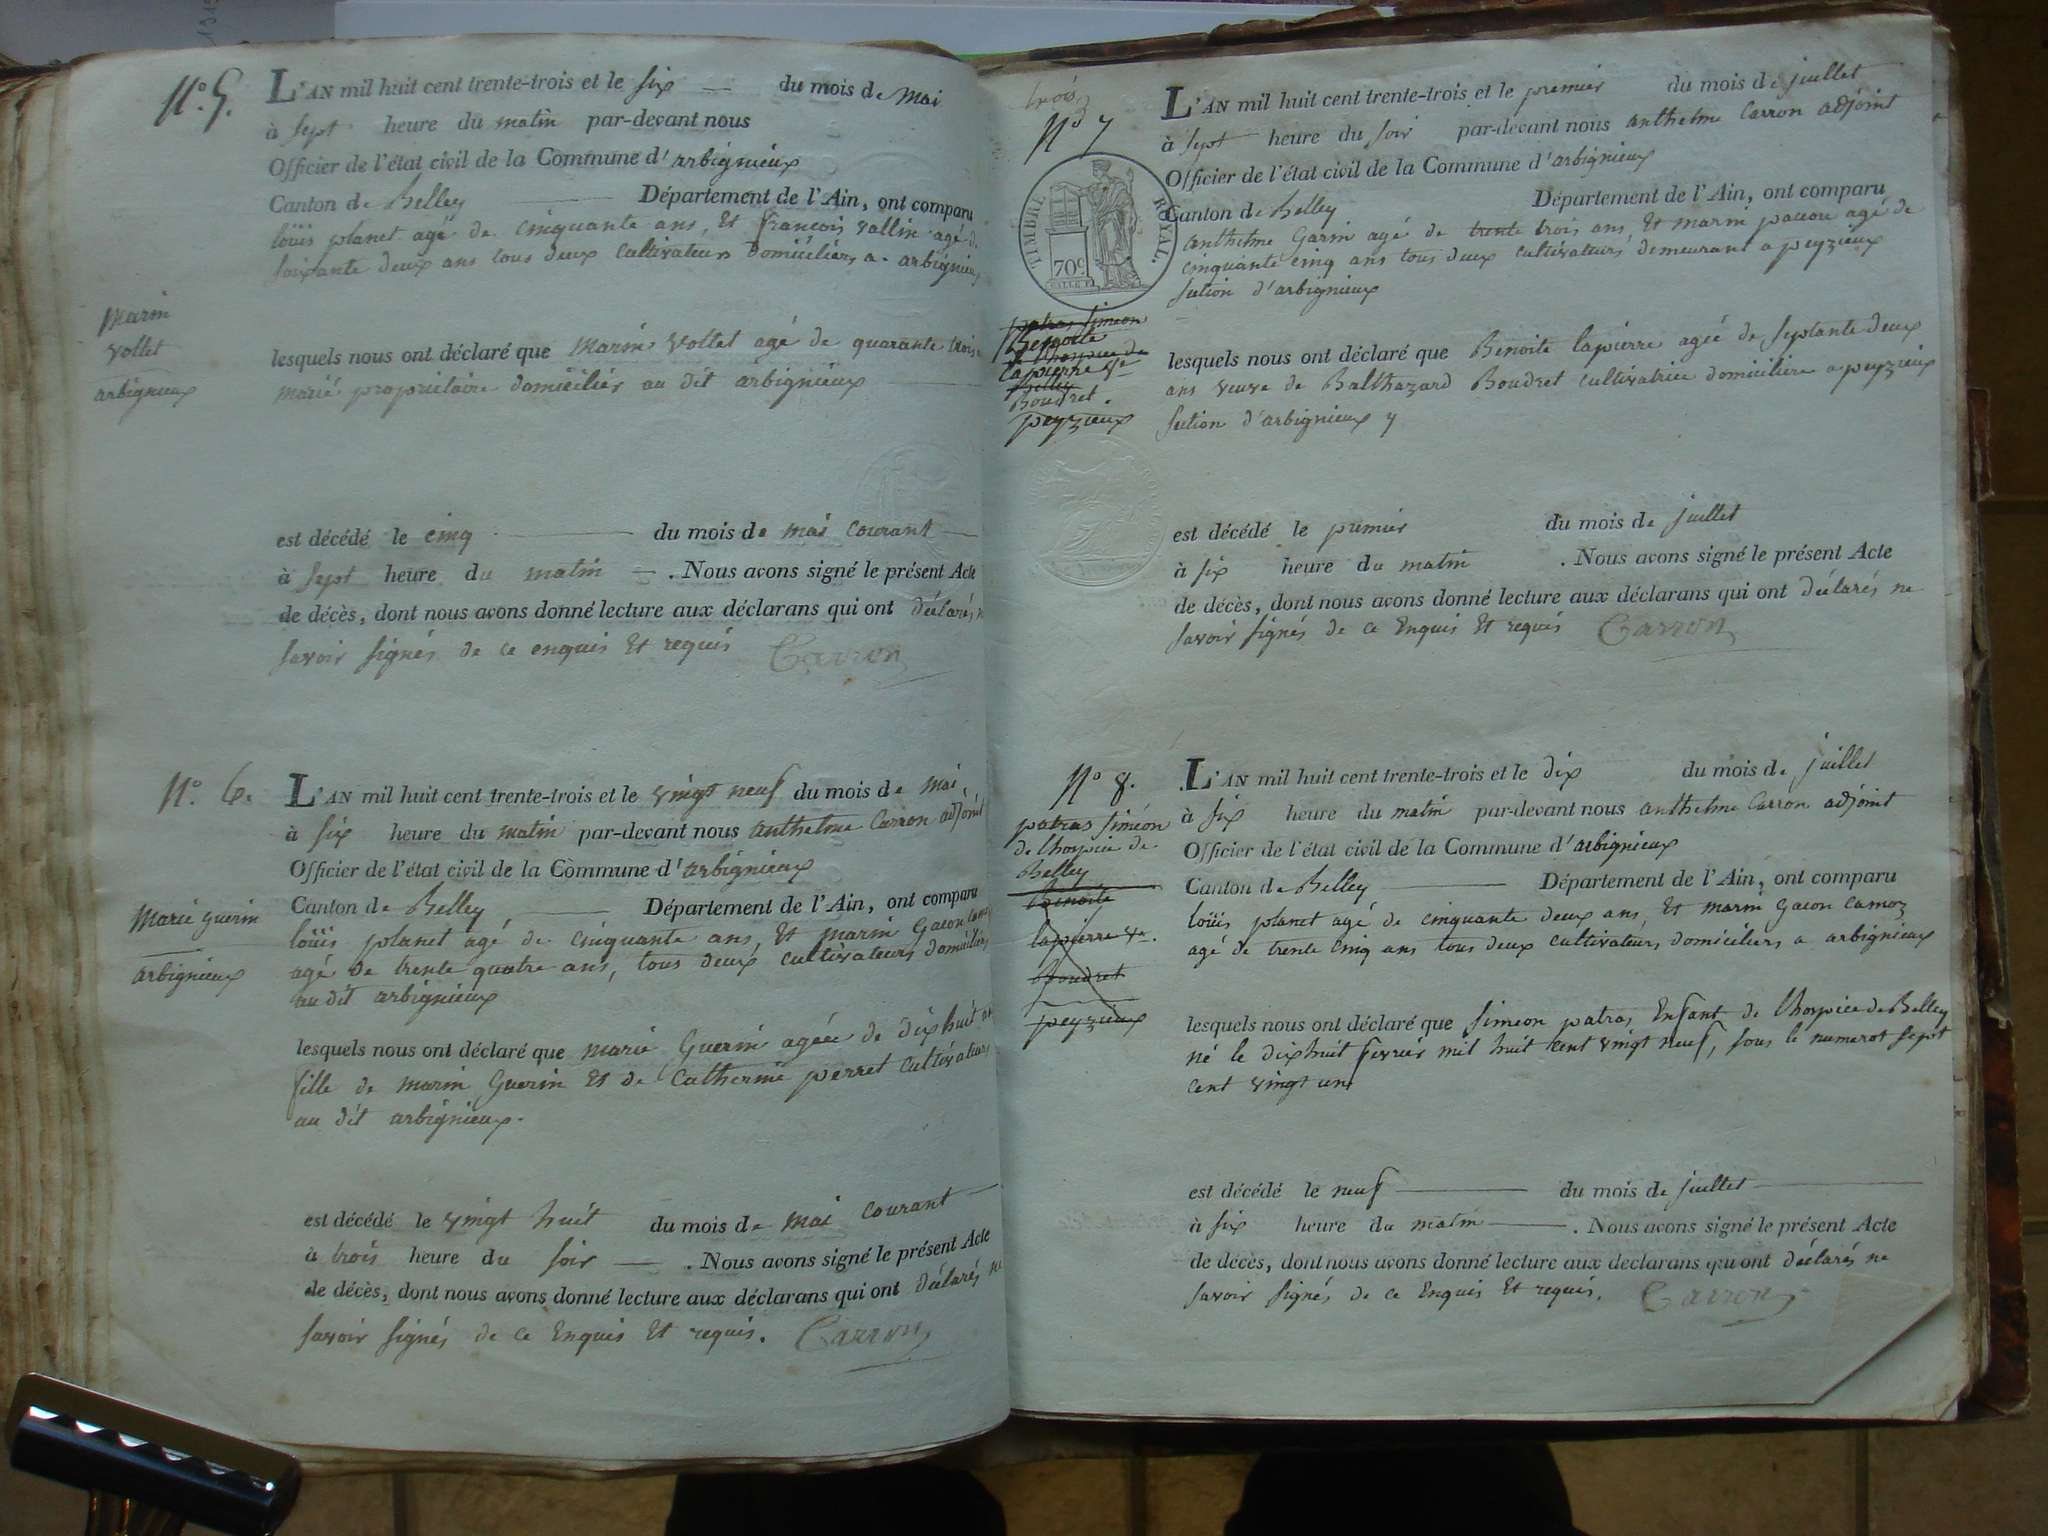 N.° 5.
L'AN mil huit cent trente-trois et le six du mois de mai
à sept heure du matin par-devant nous
Officier de l'état civil de la Commune d'arbignieux
Canton de Belley Département de l'Ain, ont comparu
loüis planet agé de cinquante ans, Et françois vallin agé de
soixante deux ans tous deux cultivateurs domiciliérs a arbignieux
Marin
vollet
arbignieux
lesquels nous ont déclaré que Marin vollet agé de quarante trois
marié proprietaire domiciliér au dit arbignieux
est décédé le cinq du mois de mai courant
à sept heure du matin . Nous avons signé le présent Acte
de décès, dont nous avons donné lecture aux déclarans qui ont déclarés ne
savoir signés de ce enquis Et requis Carron
N.° 6.
L'AN mil huit cent trente-trois et le vingt neuf du mois de mai,
à six heure du matin par-devant nous anthelme Carron adjoint
Officier de l'état civil de la Commune d'arbignieux
Canton de Belley Département de l'Ain, ont comparu
loüis planet agé de cinquante ans, Et marin Gacon
agé de trente quatre ans, tous deux cultivateurs domiciliérs
au dit arbignieux
Marie guerin
arbignieux
lesquels nous ont déclaré que marie Guerin agée de dixhuit
fille de marin Guerin Et de Catherine perret cultivateurs
au dit arbignieux.
est décédé le vingt huit du mois de mai courant
à trois heure du soir . Nous avons signé le présent Acte
de décès, dont nous avons donné lecture aux déclarans qui ont déclarés ne
savoir signés de ce Enquis Et requis. Carron
trois
N° 7
L'AN mil huit cent trente-trois et le premier du mois de juillet
à sept heure du soir par-devant nous anthelme Carron adjoint
Officier de l'état civil de la Commune d'arbignieux
Canton de Belley Département de l'Ain, ont comparu
TIMBRE ROYAL.
70c
anthelme Garin agé de trente trois ans, Et marin pacou agé de
cinquante cinq ans tous deux cultivateurs demeurant a peyzieux
section d'arbignieux
patras simeon
Benoite
de l'hospice de
lapierre Ve
Belley
Boudret.
peyzieux
lesquels nous ont déclaré que Benoite lapierre agée de septante deux
ans veuve de Balthazard Boudret cultivatrice domiciliere a peyzieux
section d'arbignieux
est décédé le premier du mois de juillet
à six heure du matin . Nous avons signé le présent Acte
de décès, dont nous avons donné lecture aux déclarans qui ont déclarés ne
savoir signés de ce Enquis Et requis Carron
N° 8.
L'AN mil huit cent trente-trois et le dix du mois de juillet
à six heure du matin par-devant nous anthelme Carron adjoint
Officier de l'état civil de la Commune d'arbignieux
Canton de Belley Département de l'Ain, ont comparu
loüis planet agé de cinquante deux ans, Et marin Gacon camoz
agé de trente cinq ans tous deux cultivateurs domiciliers a arbignieux
patras siméon
de l'hospice de
Belley
Benoite
lapierre Ve.
Boudret
peyzieux
lesquels nous ont déclaré que simeon patras, Enfant de l'hospice de Belley
né le dixhuit fevriér mil huit cent vingt neuf, sous le numerot sept
cent vingt un
est décédé le neuf du mois de juillet
à six heure du matin . Nous avons signé le présent Acte
de décès, dont nous avons donné lecture aux déclarans qui ont déclarés ne
savoir signés de ce Enquis Et requis. Carron